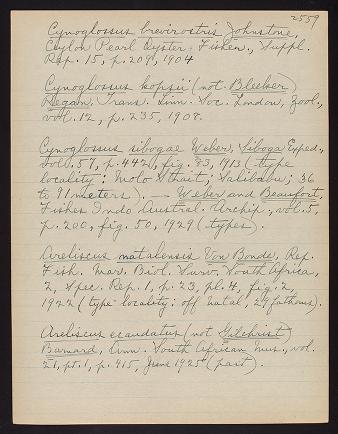 2559
Cynoglossus brevirostris Johnstone,
Ceylon Pearl Oyster Fisher., Suppl.
Rep. 15, p. 209, 1904
Cynoglossus kopsii (not Bleeker)
Regan, Trans. Linn. Soc. London, Zool.,
vol. 12, p. 235, 1908.
Cynoglossus sibogae Weber, Siboga Exped.,
vol. 57, p. 442, fig. 93, 1913 (type
locality: Molo Strait; Salibabu; 36
to 91 meters). — Weber and Beaufort,
Fishes Indo Austral. Archip., vol. 5,
p. 200, fig. 50, 1929 (types).
Areliscus natalensis Von Bonde, Rep.
Fish. Mar. Biol. Surv. South Africa,
2, Spec. Rep. 1, p. 23, pl. 4, fig. 2,
1922 (type locality: off Natal, 27 fathoms).
Areliscus ecaudatus (not Gilchrist)
Barnard, Ann. South African Mus., vol.
21, pt. 1, p. 415, June 1925 (part).